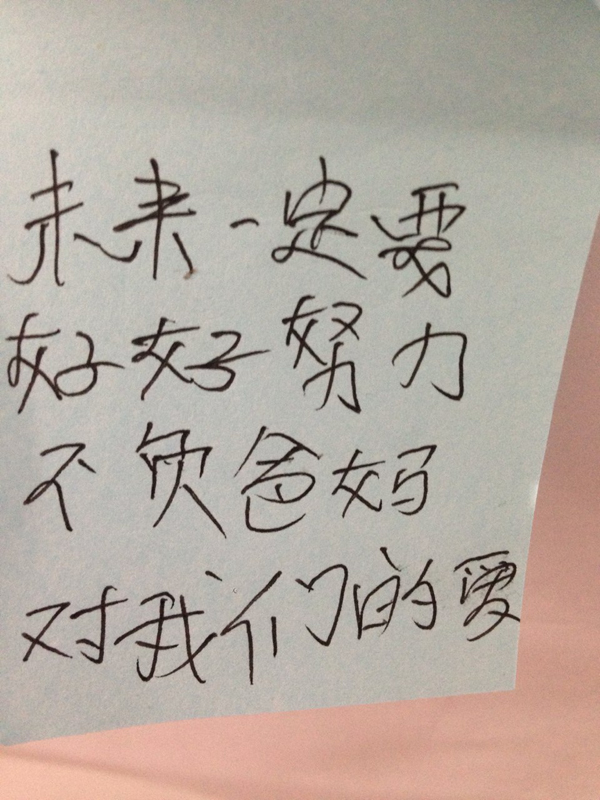 未来一定要
好好努力
不负爸妈
对我们的爱